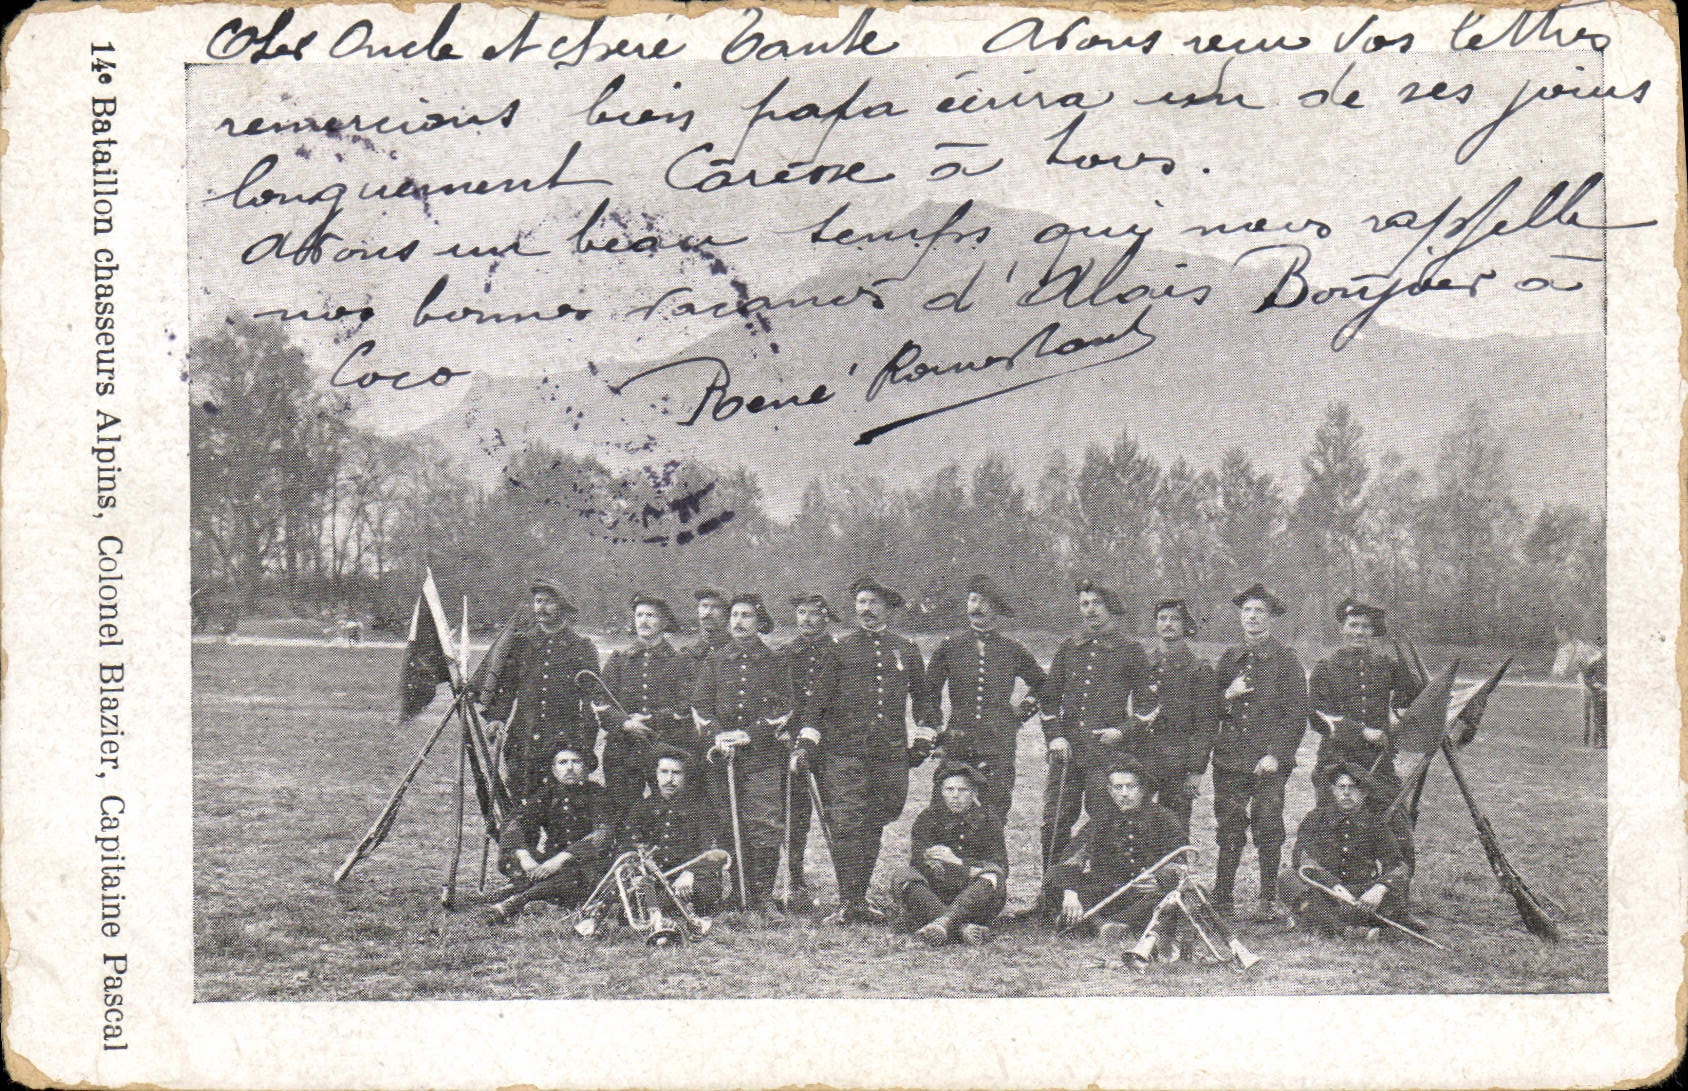 Cher Oncle et chère Tante Avons reçu vos lettres
remercions bien papa écrira un de ses jours
longuement Caresse à tous.
Avons un beau temps qui nous rappelle
nos bonnes vacances d'Alais Bonjour à
Coco
René
14e Bataillon chasseurs Alpins, Colonel Blazier, Capitaine Pascal